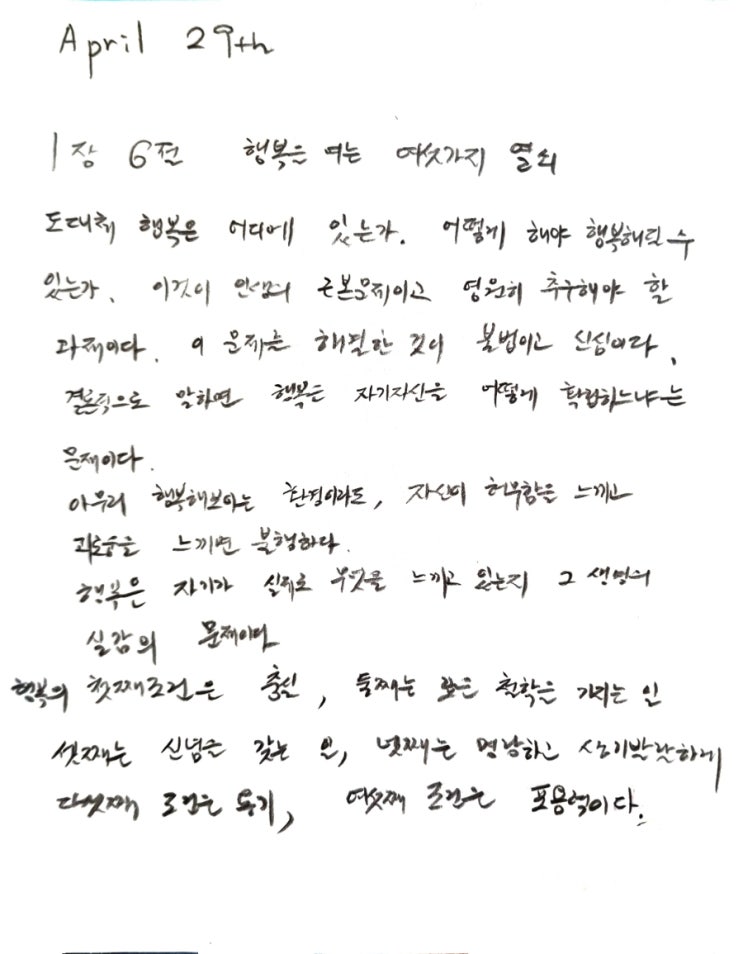 April 29th
1장 6절 행복을 여는 여섯가지 열쇠
도대체 행복은 어디에 있는가. 어떻게 해야 행복해질 수
있는가. 이것이 인생의 근본문제이고 영원히 추구해야 할
과제이다. 이 문제를 해결한 것이 불법이고 신심이다.
결론적으로 말하면 행복은 자기자신을 어떻게 확립하느냐는
문제이다.
아무리 행복해보이는 환경이라도, 자신이 허무함을 느끼고
괴로움을 느끼면 불행하다.
행복은 자기가 실제로 무엇을 느끼고 있는지 그 생명의
실감의 문제이다
행복의 첫째조건은 충실, 둘째는 깊은 철학을 가지는 일
셋째는 신념을 갖는 일, 넷째는 명랑하고 생기발랄하게
다섯째 조건은 용기, 여섯째 조건은 포용력이다.